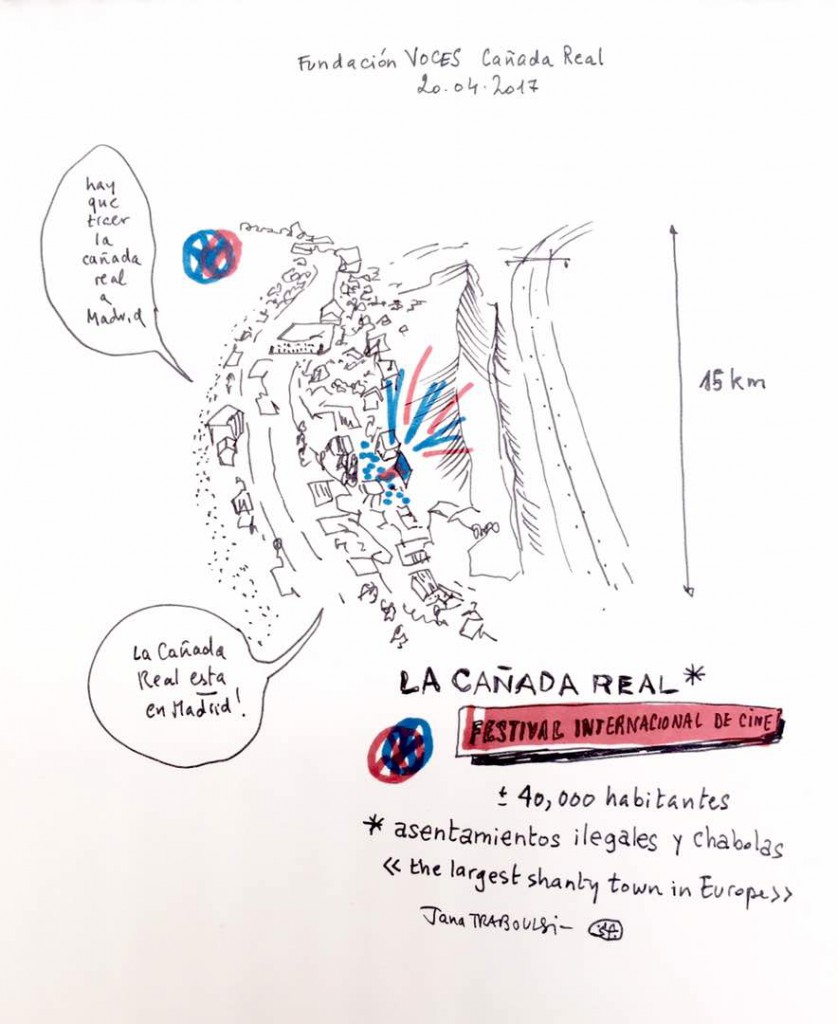 Fundación VOCES Cañada Real
20.04.2017
hay
que
traer
la
cañada
real
a
Madrid
15 km
La Cañada
Real esta
en Madrid!
LA CAÑADA REAL*
FESTIVAL INTERNACIONAL DE CINE
± 40,000 habitantes
* asentamientos ilegales y chabolas
« the largest shanty town in Europe»
Jana TRABOULSI